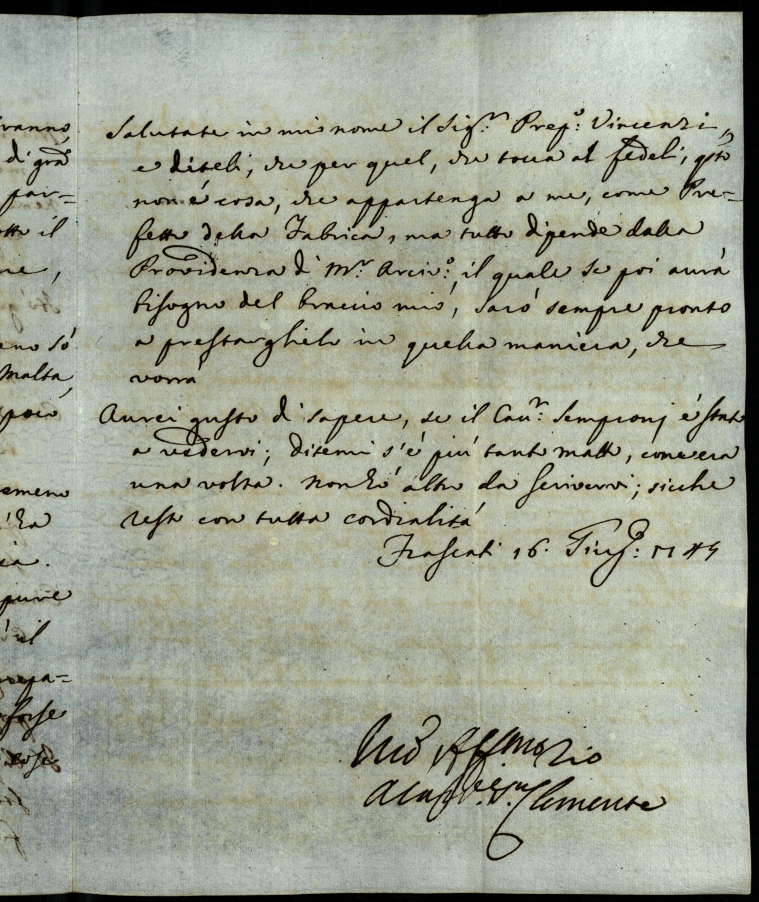 vanno,
di grã
par=
otto il
ne,
eno sò
Malta,
però
emeno
ha
ia.
pure
il
repa=
forse
cose
Salutate in mio nome il Sigr. Prefo. Vincenzi,
e diteli, che per quel, che tocca al fedeli, qto
non é cosa, che appartenga a me, come Pre=
fetto della Fabrica, ma tutto dipende dalla
Providenza di Mr. Arcivo., il quale se poi avrà
bisogno del braccio mio, sarò sempre pronto
a prestarglielo in quella maniera, che
vorrà
Avrei gusto di sapere, se il Cavr. Sempronj é stato
a vedervi; ditemi s'é più tanto matto, come era
una volta. non hò altro da scrivervi; sicche
resto con tutta cordialità
Frascati 16. Giug: 1745
Affmo Zio
Clemente